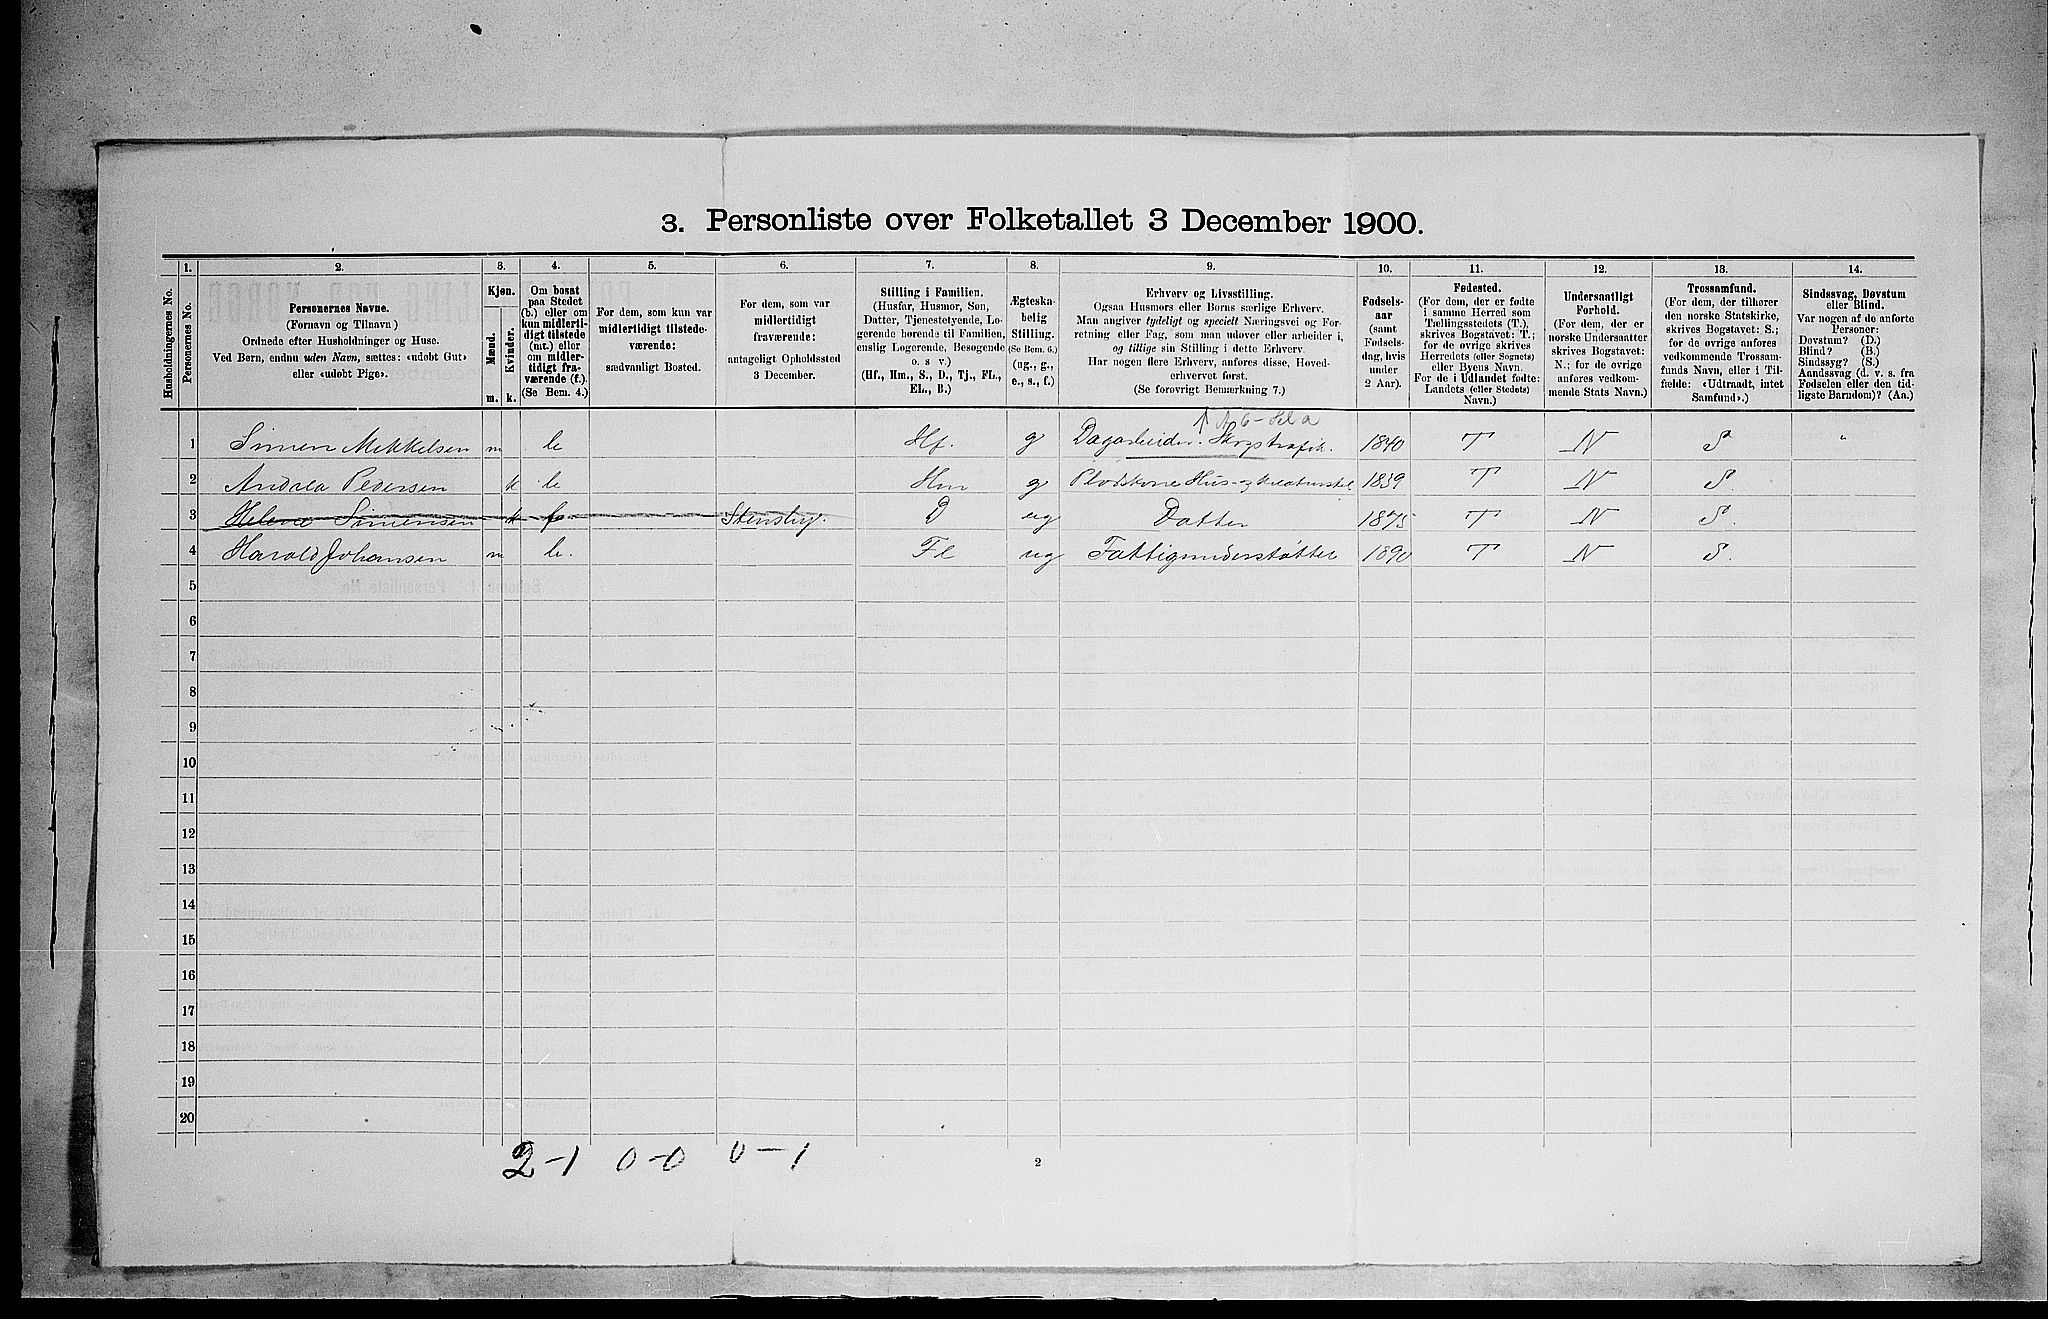 3. Personliste over Folketallet 3 December 1900.
Husholdningernes No.
1.
Personernes No.
2.
Personernes Navne.
(Fornavn og Tilnavn)
Ordnede efter Husholdninger og Huse.
Ved Børn, endnu uden Navn, sættes: «udøbt Gut»
eller «udøbt Pige».
3.
Kjøn.
Mænd.
Kvinder.
m. k.
4.
Om bosat
paa Stedet
(b.) eller om
kun midlerti-
digt tilstede
(mt.) eller
om midler-
tidigt fra-
værende (f.).
(Se Bem. 4.)
5.
For dem, som kun var
midlertidigt tilstede-
værende:
sædvanligt Bosted.
6.
For dem, som var
midlertidigt
fraværende:
antageligt Opholdssted
3 December.
7.
Stilling i Familien.
(Husfar, Husmor, Søn,
Datter, Tjenestetyende, Lo-
gerende hørende til Familien,
enslig Logerende, Besøgende
o. s. v.)
(Hf., Hm., S., D., Tj., FL.,
EL., B.)
8.
Ægteska-
belig
Stilling.
(Se Bem. 6.)
(ug., g.,
e., s., f.)
9.
Erhverv og Livsstilling.
Ogsaa Husmors eller Børns særlige Erhverv.
Man angiver tydeligt og specielt Næringsvei og For-
retning eller Fag, som man udøver eller arbeider i,
og tillige sin Stilling i dette Erhverv.
Har nogen flere Erhverv, anføres disse, Hoved-
erhvervet først.
(Se forøvrigt Bemærkning 7.)
10.
Fødsels-
aar
(samt
Fødsels-
dag, hvis
under
2 Aar).
11.
Fødested.
(For dem, der er fødte
i samme Herred som
Tællingsstedets (T.),
skrives Bogstavet: T.;
for de øvrige skrives
Herredets (eller Sognets)
eller Byens Navn.
For de i Udlandet fødte:
Landets (eller Stedets)
Navn.)
12.
Undersaatligt
Forhold.
(For dem, der er
norske Undersaatter
skrives Bogstavet:
N.; for de øvrige
anføres vedkom-
mende Stats Navn.)
13.
Trossamfund.
(For dem, der tilhører
den norske Statskirke,
skrives Bogstavet: S.;
for de øvrige anføres
vedkommende Trossam-
funds Navn, eller i Til-
fælde: «Udtraadt, intet
Samfund».)
14.
Sindssvag, Døvstum
eller Blind.
Var nogen af de anførte
Personer:
Døvstum? (D.)
Blind? (B.)
Sindssyg? (S.)
Aandssvag (d. v. s. fra
Fødselen eller den tid-
ligste Barndom)? (Aa.)
1 Simen Mikkelsen m b Hf. g Dagarbeider. 1840 T N S
2 Andrea Pedersen k b Hm g Hus- og Kreaturstel 1839 T N S.
3 Helene Simensen k f Stensby. D ug Datter 1875 T N S.
4 Harald Johansen m b. Fl ug Fattigunderstøttet 1890 T N S.
5
6
7
8
9
10
11
12
13
14
15
16
17
18
19
20
2-1 0-0 0-1
2